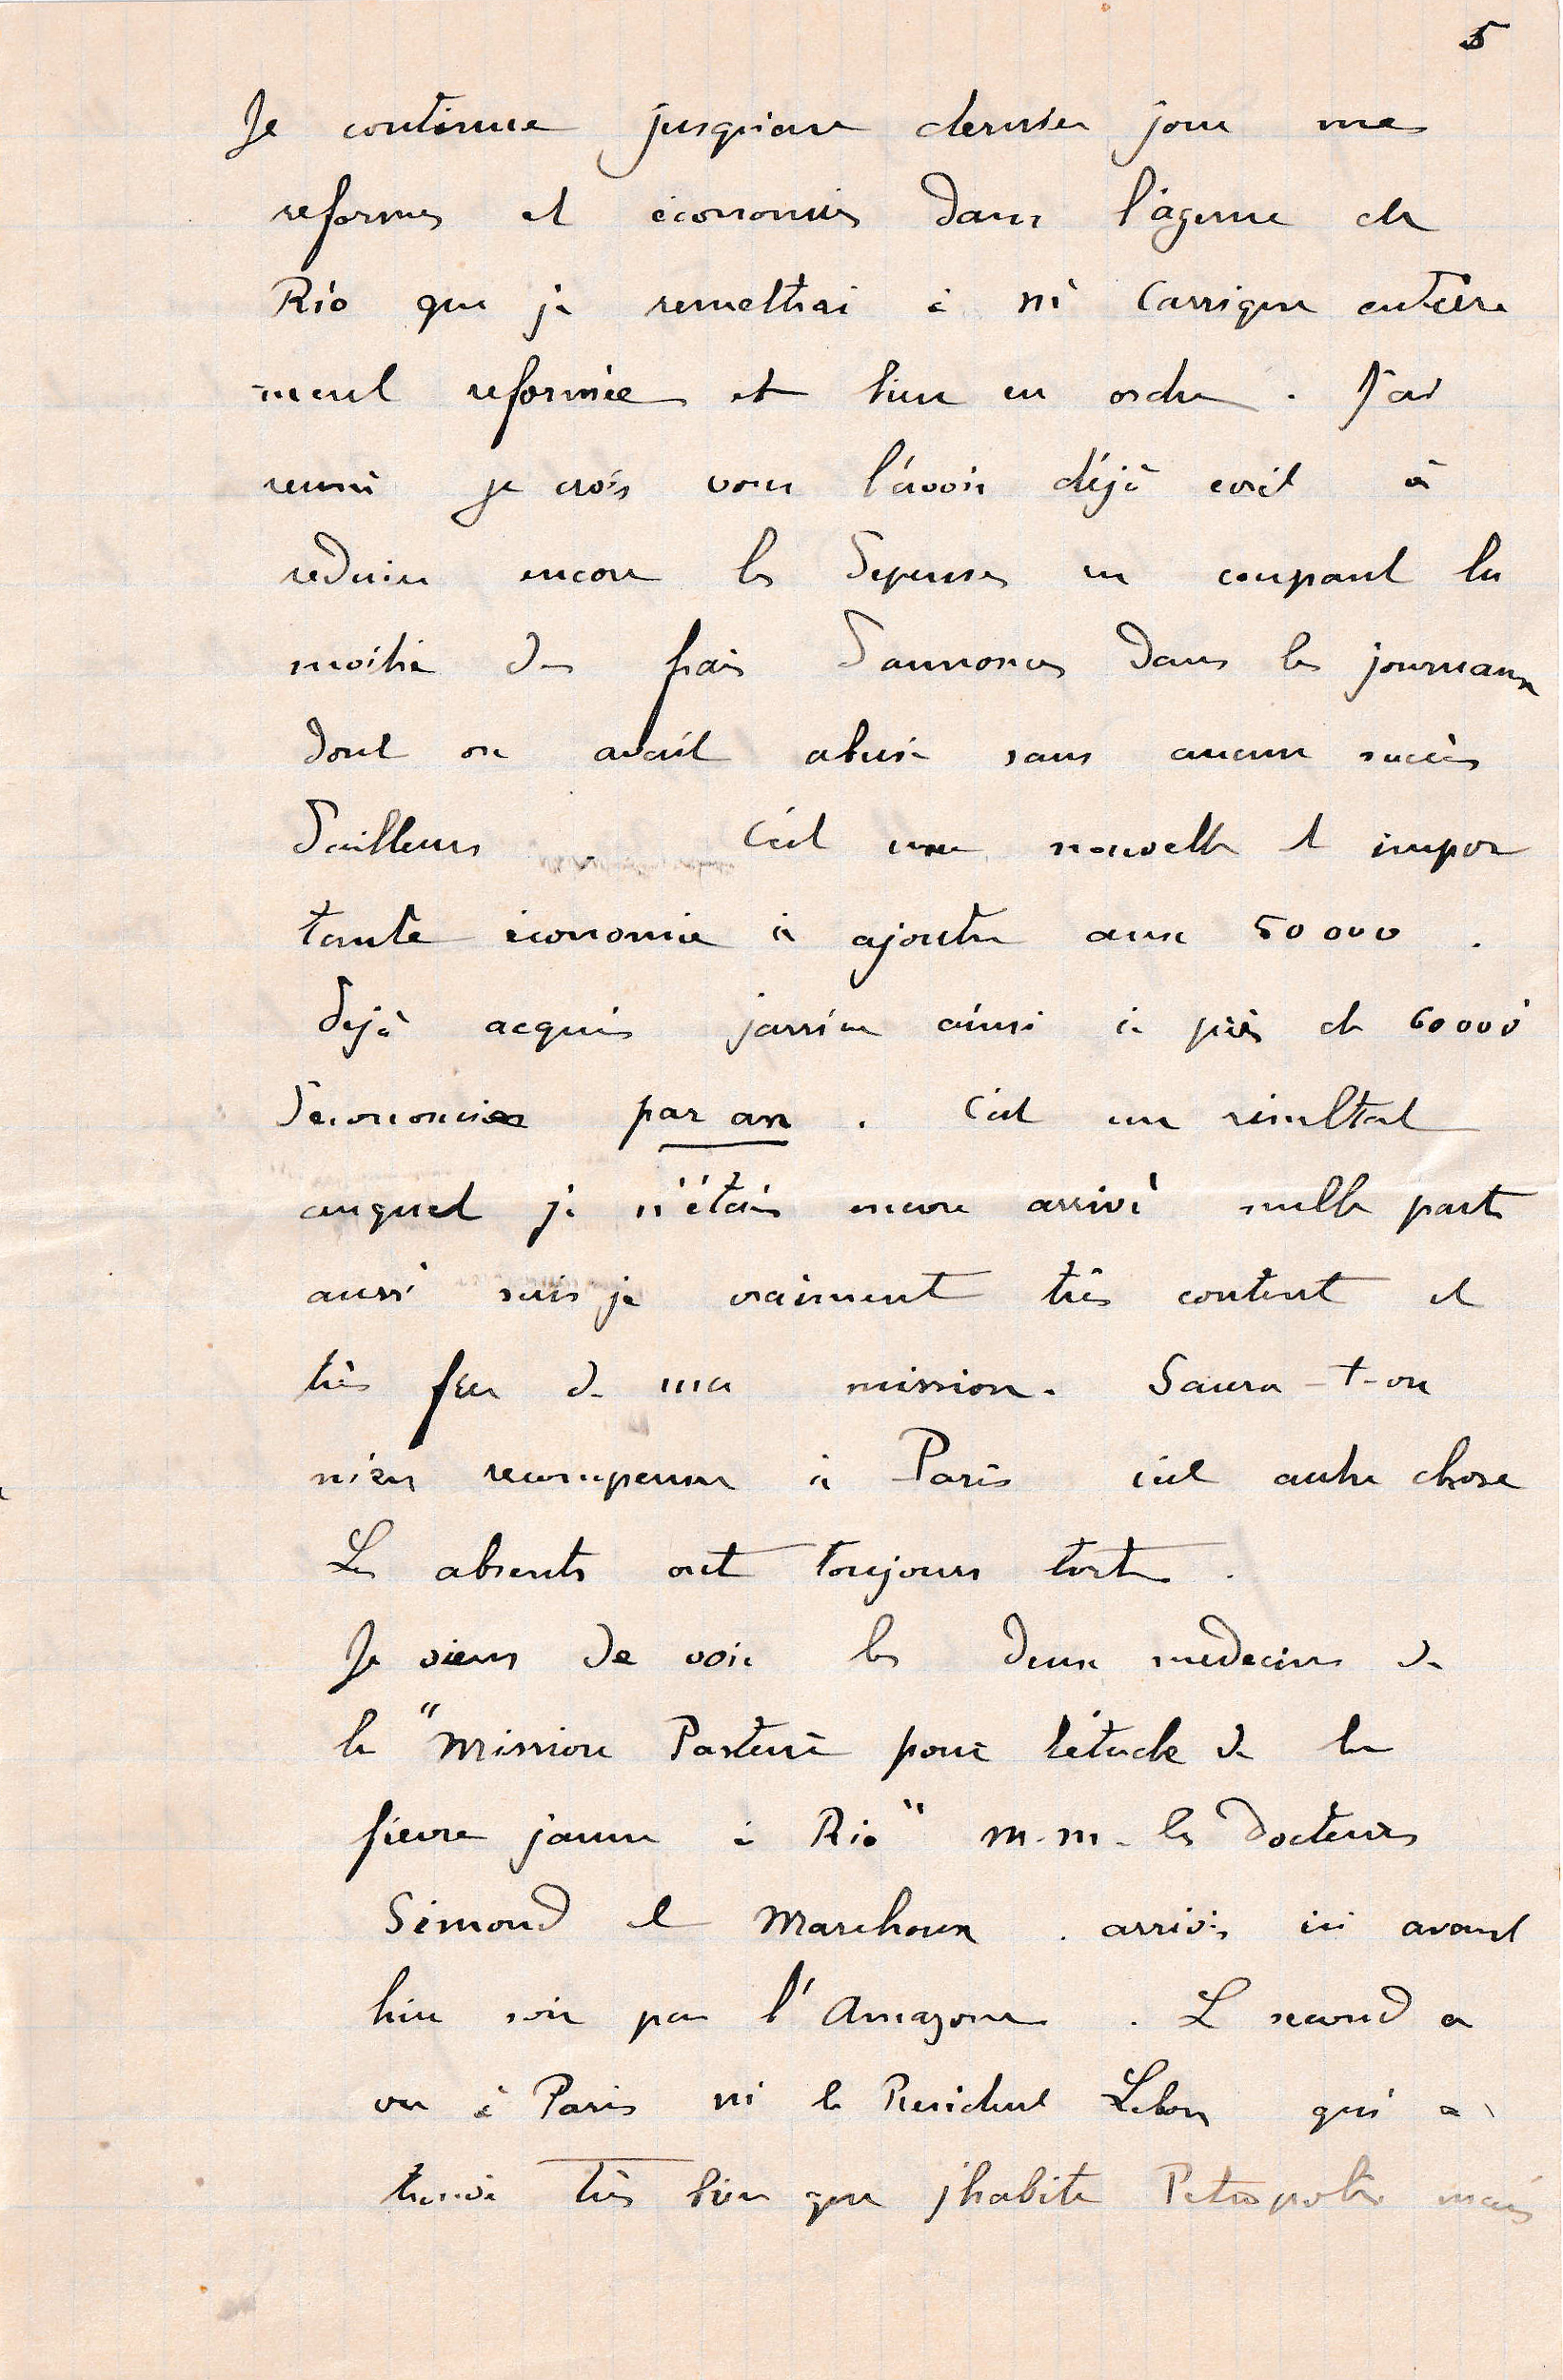 5
Je continue jusqu'au dernier jour mes
reformes et économies dans l'agence de
Rio que je remettrai à Mr Carrique entière
-ment reformée et bien en ordre. J'ai
reussi je crois vous l'avoir déjà ecrit à
reduire encore les depenses en coupant la
moitié des frais d'annonces dans les journaux
dont on avait abusé sans aucun succès
d'ailleurs. C'est une nouvelle et impor
tante économie à ajouter aux 50000.
dejà acquis j'arrive ainsi à près de 60000
d'economies par an. C'est un résultat
auquel je n'étais encore arrivé nulle part
aussi suis je vraiment très content et
très fier de ma mission. Saura-t-on
m'en recompenser à Paris c'est autre chose
Les absents ont toujours tort.
Je viens de voir les deux medecins de
la "Mission Pasteur pour l'étude de la
fievre jaune à Rio" M.M. les docteurs
Simond et Marchoux. arrivés ici avant
hier soir par l'Amazone. Le second a
vu à Paris Mr le President Lebon qui a
trouvé très bien que j'habite Petropolis mais